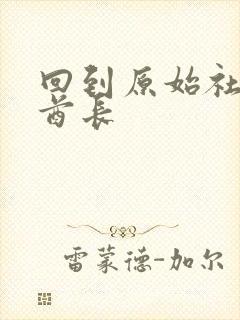 回到原始社
酋长
雷蒙德-加尔